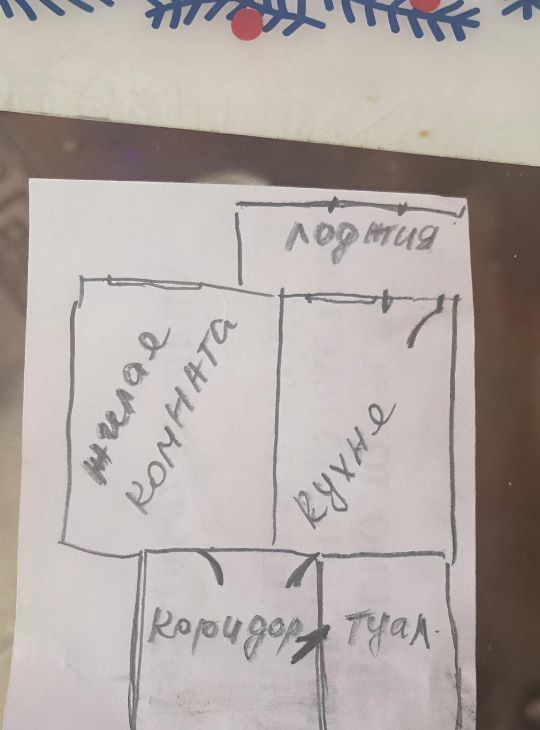 лоджия
жилая
комната
кухне
коридор
туал.